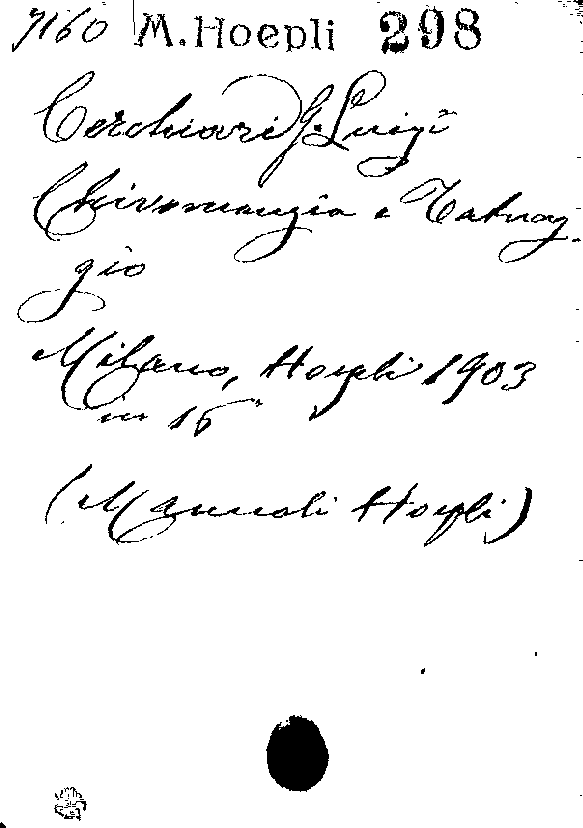 7160 M. Hoepli 298
Cerchiari G. Luigi
Chiromanzia e Tatuag-
gio
Milano, Hoepli 1903
in 16°
(Manuali Hoepli)